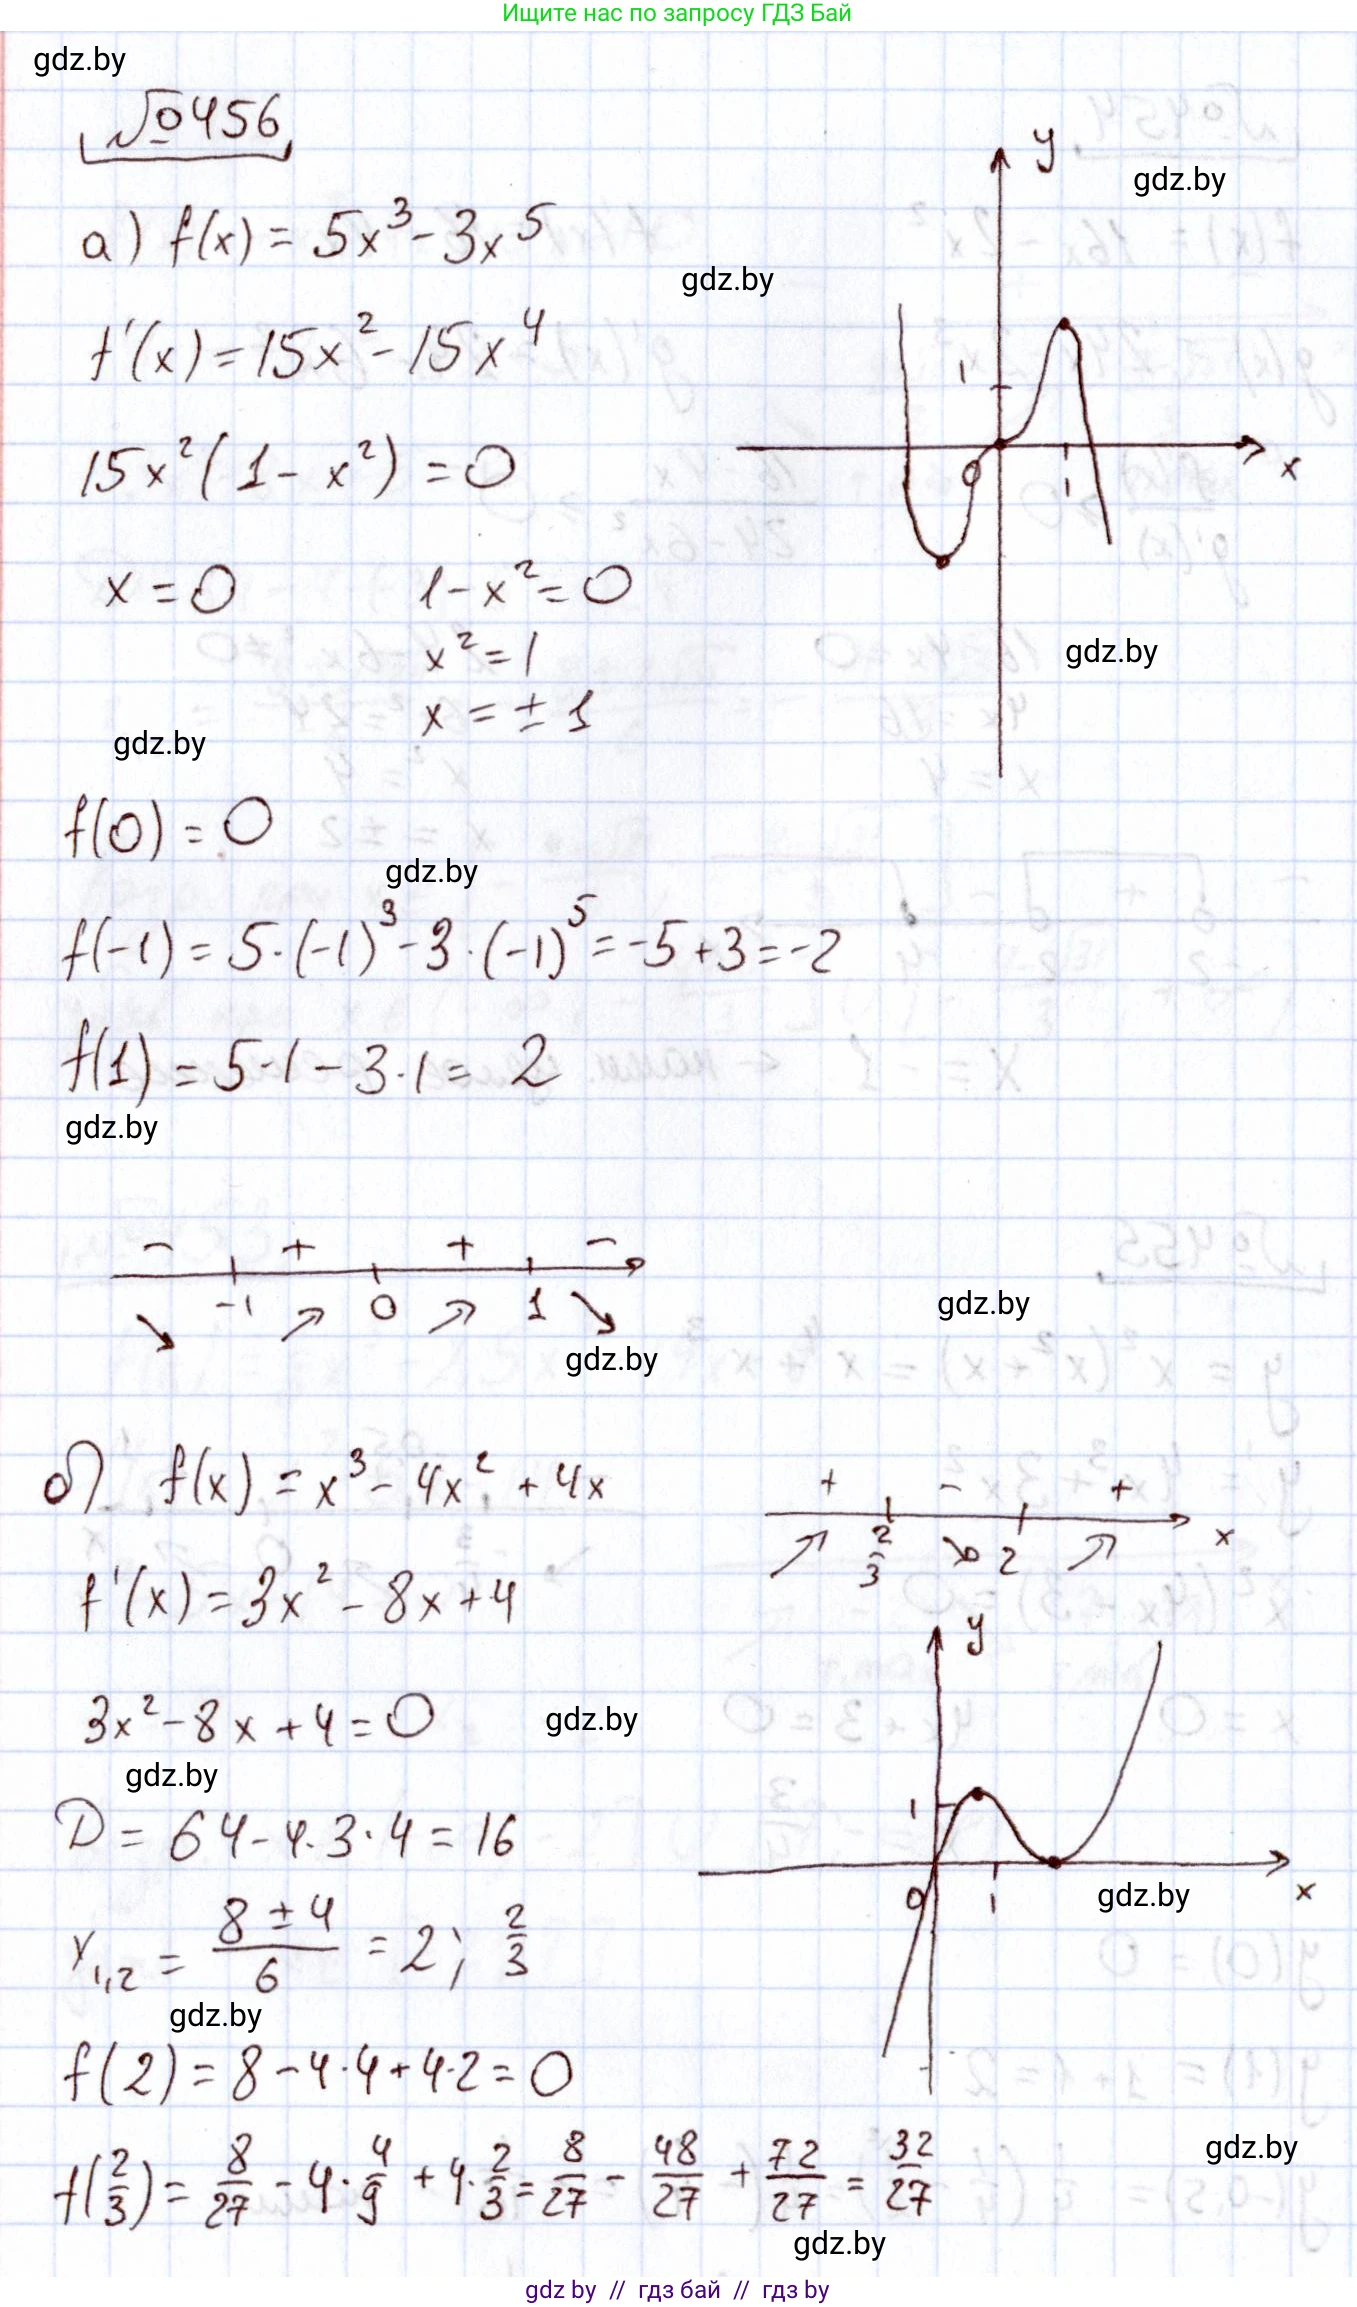 Ищите нас по запросу ГДЗ Бай
gdz.by
№456
y
gdz.by
а) f(x) = 5x³ - 3x⁵
gdz.by
f'(x) = 15x² - 15x⁴
1
15x²(1 - x²) = 0
0
1
x
x = 0
1 - x² = 0
x² = 1
gdz.by
x = ± 1
gdz.by
f(0) = 0
gdz.by
f(-1) = 5·(-1)³ - 3·(-1)⁵ = -5 + 3 = -2
f(1) = 5·1 - 3·1 = 2
gdz.by
- + + -
-1 0 1
gdz.by
gdz.by
б) f(x) = x³ - 4x² + 4x
+ - +
2/3 2 x
f'(x) = 3x² - 8x + 4
y
3x² - 8x + 4 = 0
gdz.by
gdz.by
D = 64 - 4·3·4 = 16
1
0 1 x
gdz.by
x₁,₂ = (8 ± 4)/6 = 2; 2/3
gdz.by
f(2) = 8 - 4·4 + 4·2 = 0
gdz.by
f(2/3) = 8/27 - 4·4/9 + 4·2/3 = 8/27 - 48/27 + 72/27 = 32/27
gdz.by
gdz by // гдз бай // гдз by